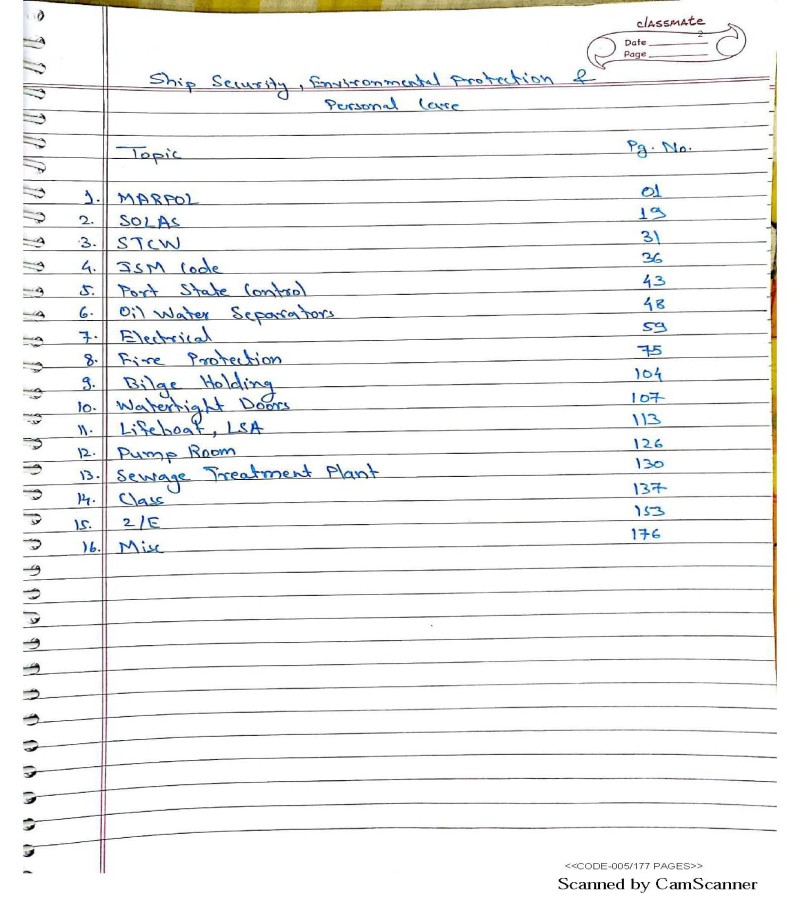 classmate
Date
2
Page
Ship Security, Environmental Protection &
Personal Care
Topic Pg. No.
1. MARPOL 01
2. SOLAS 19
3. STCW 31
4. ISM Code 36
5. Port State Control 43
6. Oil Water Separators 48
7. Electrical 59
8. Fire Protection 75
9. Bilge Holding 104
10. Watertight Doors 107
11. Lifeboat, LSA 113
12. Pump Room 126
13. Sewage Treatment Plant 130
14. Class 137
15. 2/E 153
16. Misc 176
<<CODE-005/177 PAGES>>
Scanned by CamScanner